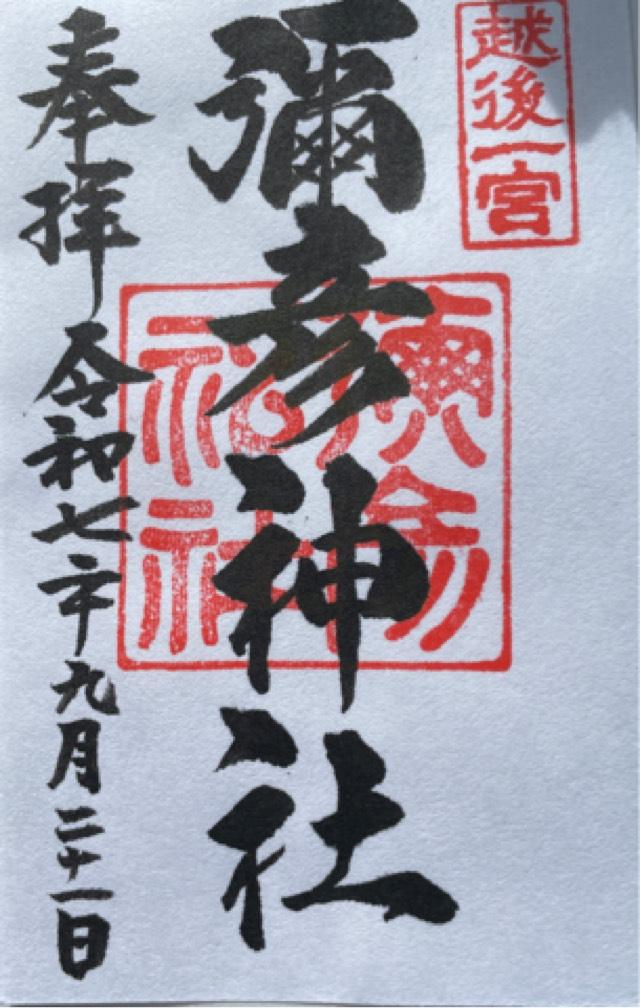 越後一宮
彌彦神社
彌彦神社
奉拝 令和七年九月二十一日